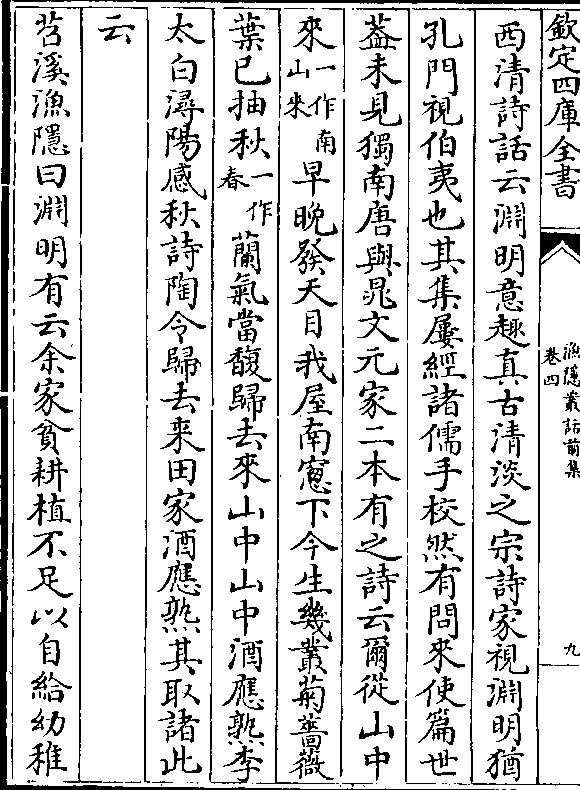 欽定四庫全書
漁隱叢話前集
卷四
九
西清詩話云淵明意趣真古清淡之宗詩家視淵明猶
孔門視伯夷也其集屢經諸儒手校然有問來使篇世
葢未見獨南唐與晁文元家二本有之詩云爾從山中
來一作南山來早晩發天目我屋南窻下今生幾叢菊薔薇
葉已抽秋一作春蘭氣當馥歸去來山中山中酒應熟李
太白潯陽感秋詩陶令歸去来田家酒應熟其取諸此
云
苕溪漁隱曰淵明有云余家貧耕植不足以自給幼稚